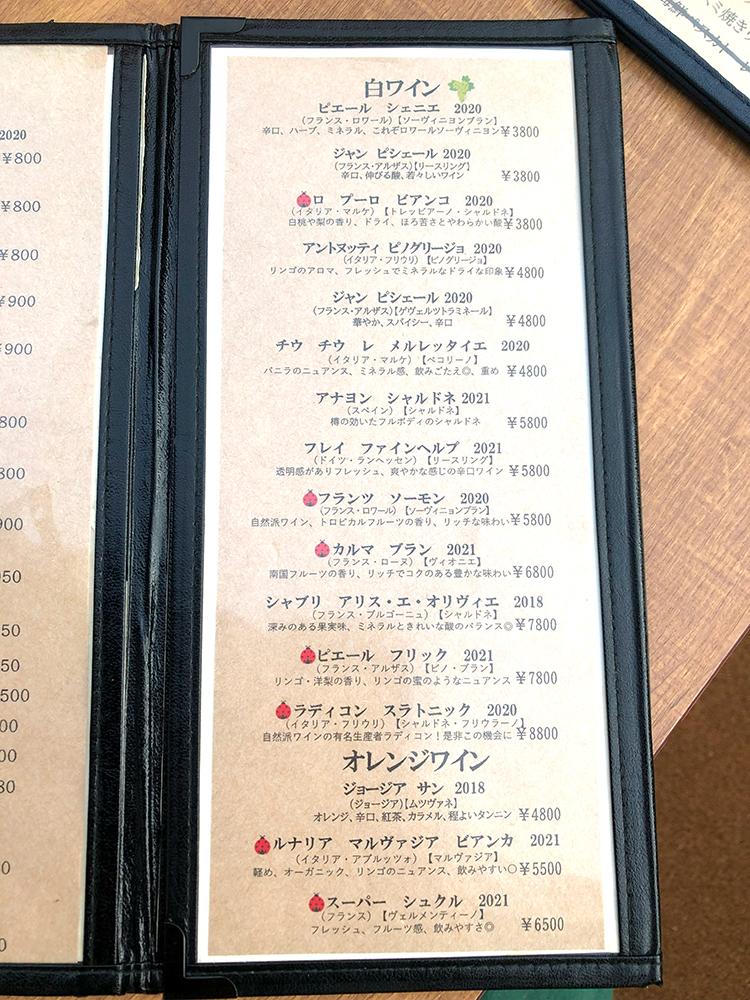 2020
¥800
¥800
¥800
¥900
¥900
白ワイン
ピエール シェニエ 2020
(フランス・ロワール)【ソーヴィニヨンブラン】
辛口、ハーブ、ミネラル、これぞロワールソーヴィニヨン¥3800
ジャン ピシェール 2020
(フランス・アルザス)【リースリング】
辛口、伸びる酸、若々しいワイン ¥3800
ロ プーロ ビアンコ 2020
(イタリア・マルケ)【トレッビアーノ・シャルドネ】
白桃や梨の香り、ドライ、ほろ苦さとやわらかい酸¥3800
アントヌッティ ピノグリージョ 2020
(イタリア・フリウリ)【ピノグリージョ】
リンゴのアロマ、フレッシュでミネラルなドライな印象¥4800
ジャン ピシェール 2020
(フランス・アルザス)【ゲヴェルツトラミネール】
華やか、スパイシー、辛口 ¥4800
チウ チウ レ メルレッタイエ 2020
(イタリア・マルケ)【ペコリーノ】
バニラのニュアンス、ミネラル感、飲みごたえ◎、重め ¥4800
アナヨン シャルドネ 2021
(スペイン)【シャルドネ】
樽の効いたフルボディのシャルドネ ¥5800
フレイ ファインヘルプ 2021
(ドイツ・ランヘッセン)【リースリング】
透明感がありフレッシュ、爽やかな感じの辛口ワイン ¥5800
フランツ ソーモン 2020
(フランス・ロワール)【ソーヴィニョンブラン】
自然派ワイン、トロピカルフルーツの香り、リッチな味わい¥5800
カルマ ブラン 2021
(フランス・ローヌ)【ヴィオニエ】
南国フルーツの香り、リッチでコクのある豊かな味わい¥6800
シャブリ アリス・エ・オリヴィエ 2018
(フランス・ブルゴーニュ)【シャルドネ】
深みのある果実味、ミネラルときれいな酸のバランス◎¥7800
ピエール フリック 2021
(フランス・アルザス)【ピノ・ブラン】
リンゴ・洋梨の香り、リンゴの蜜のようなニュアンス ¥7800
ラディコン スラトニック 2020
(イタリア・フリウリ)【シャルドネ・フリウラーノ】
自然派ワインの有名生産者ラディコン!是非この機会に ¥8800
オレンジワイン
ジョージア サン 2018
(ジョージア)【ムツヴァネ】
オレンジ、辛口、紅茶、カラメル、程よいタンニン ¥4800
ルナリア マルヴァジア ビアンカ 2021
(イタリア・アブルッツォ)【マルヴァジア】
軽め、オーガニック、リンゴのニュアンス、飲みやすい〇¥5500
スーパー シュクル 2021
(フランス)【ヴェルメンティーノ】
フレッシュ、フルーツ感、飲みやすさ◎ ¥6500